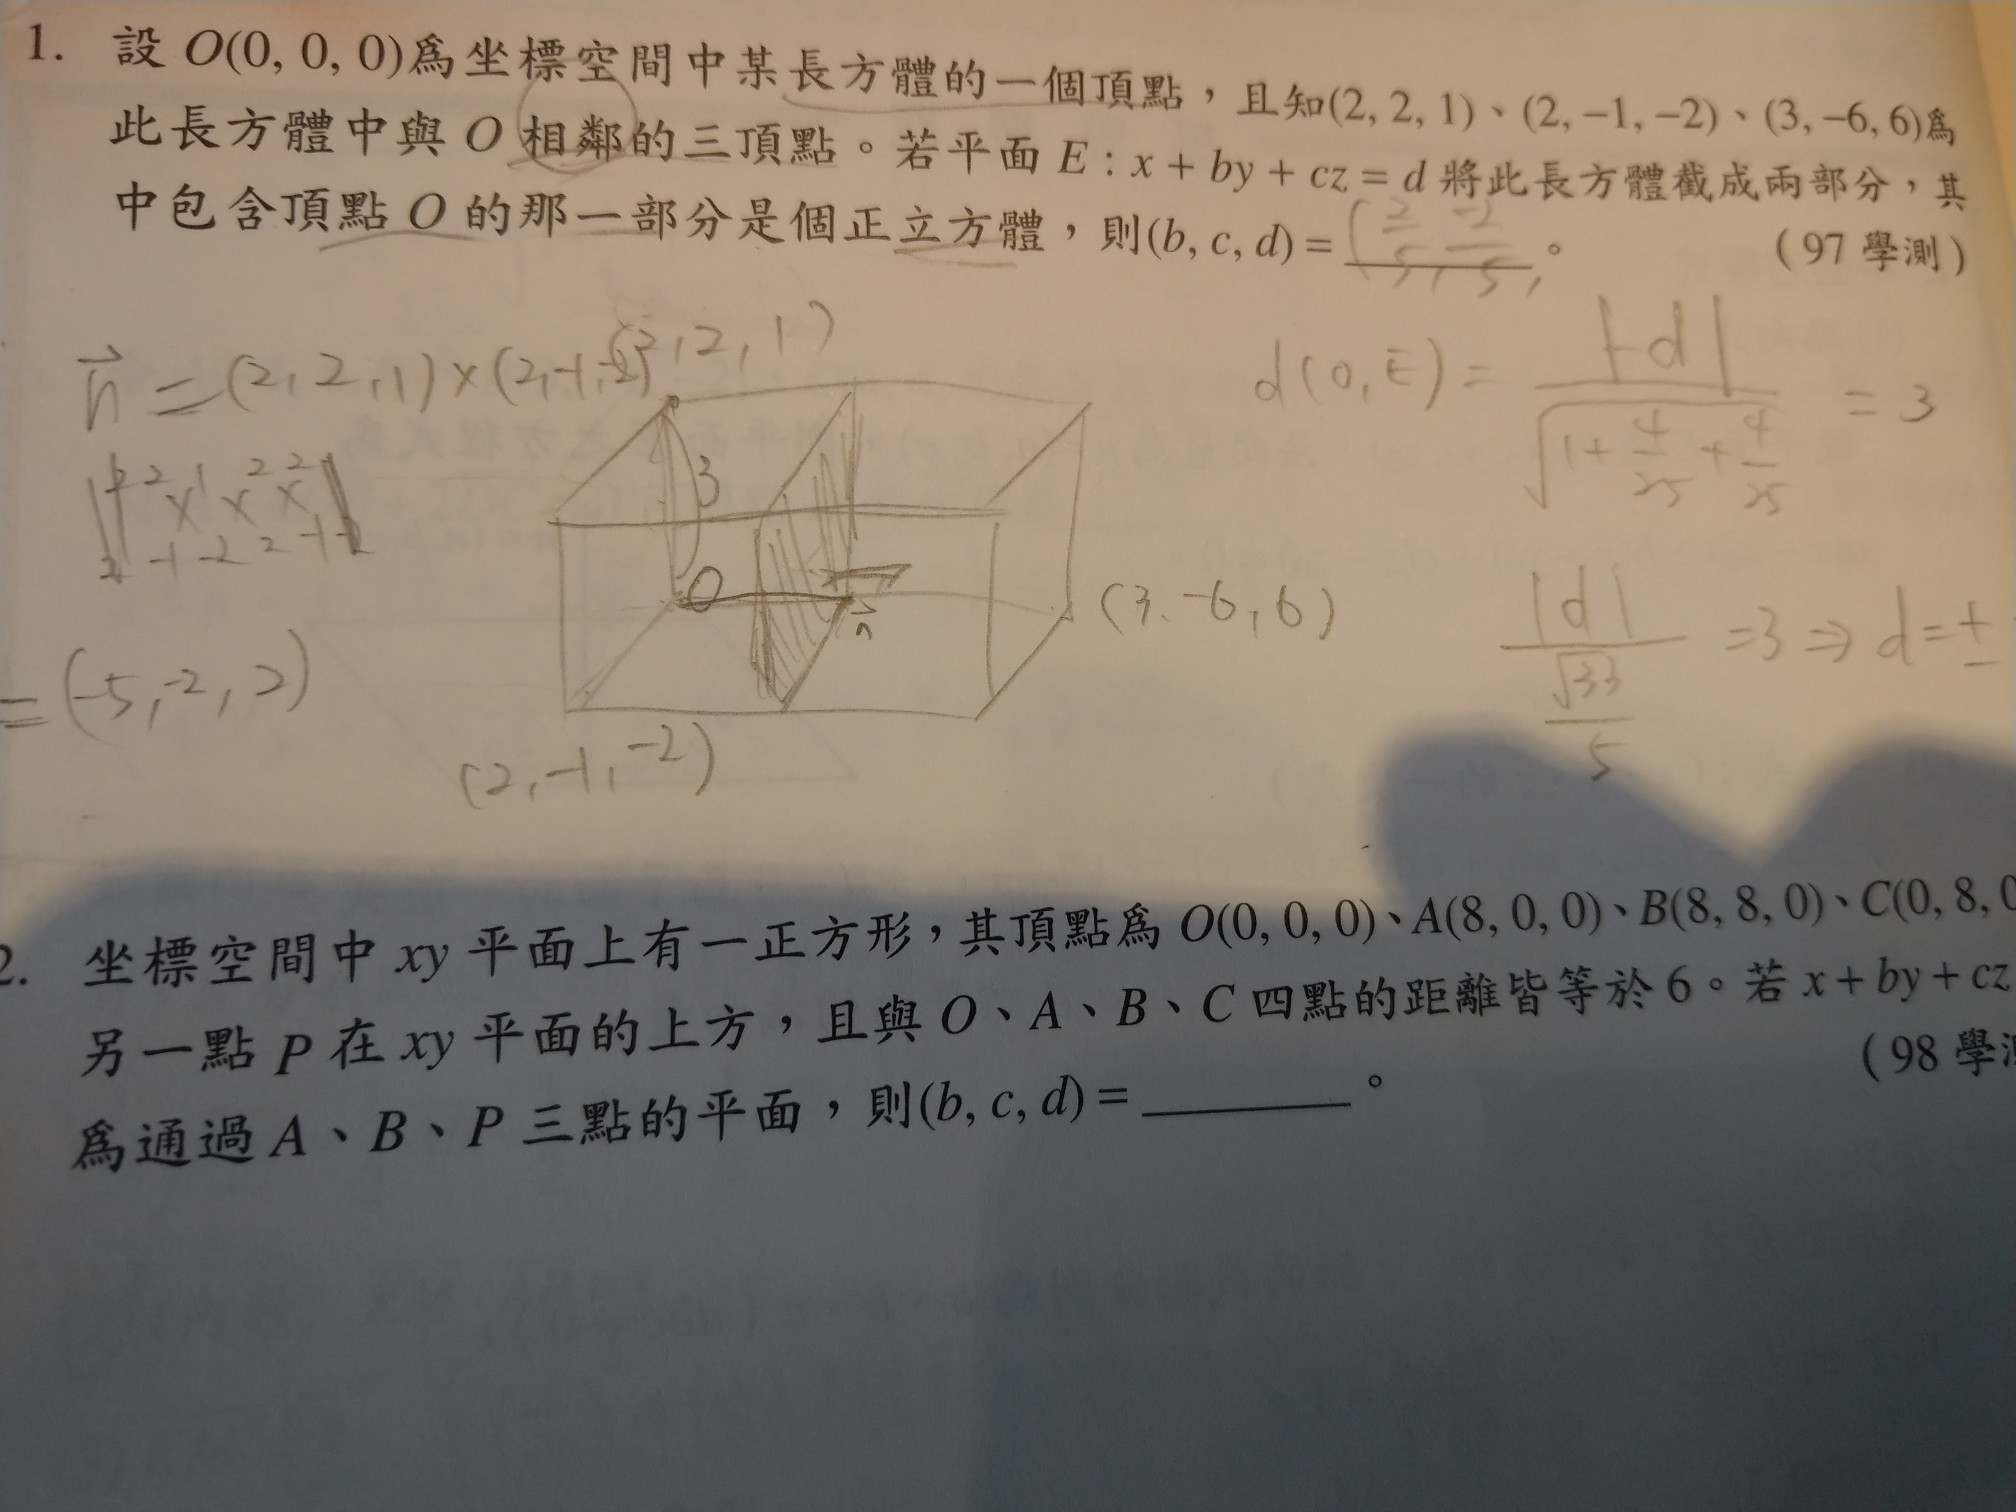 1. 設 O(0, 0, 0)為坐標空間中某長方體的一個頂點，且知(2, 2, 1)、(2, –1, –2)、(3, –6, 6)為
此長方體中與 O 相鄰的三頂點。若平面 E : x + by + cz = d 將此長方體截成兩部分，其
中包含頂點 O 的那一部分是個正立方體，則(b, c, d) = ( 2/5, -2/5, 。
(97 學測)
n = (2, 2, 1) × (2, -1, -2)
= (-5, -2, 2)
2, 1)
3
O
n
(3. -6, 6)
(2, -1, -2)
d(0, E) = |-d| / √1 + 4/25 + 4/25 = 3
|d| / √33/5 = 3 ⇒ d = ±
2. 坐標空間中 xy 平面上有一正方形，其頂點為 O(0, 0, 0)、A(8, 0, 0)、B(8, 8, 0)、C(0, 8, 0
另一點 P 在 xy 平面的上方，且與 O、A、B、C 四點的距離皆等於 6。若 x + by + cz
為通過 A、B、P 三點的平面，則(b, c, d) = 。
(98 學測